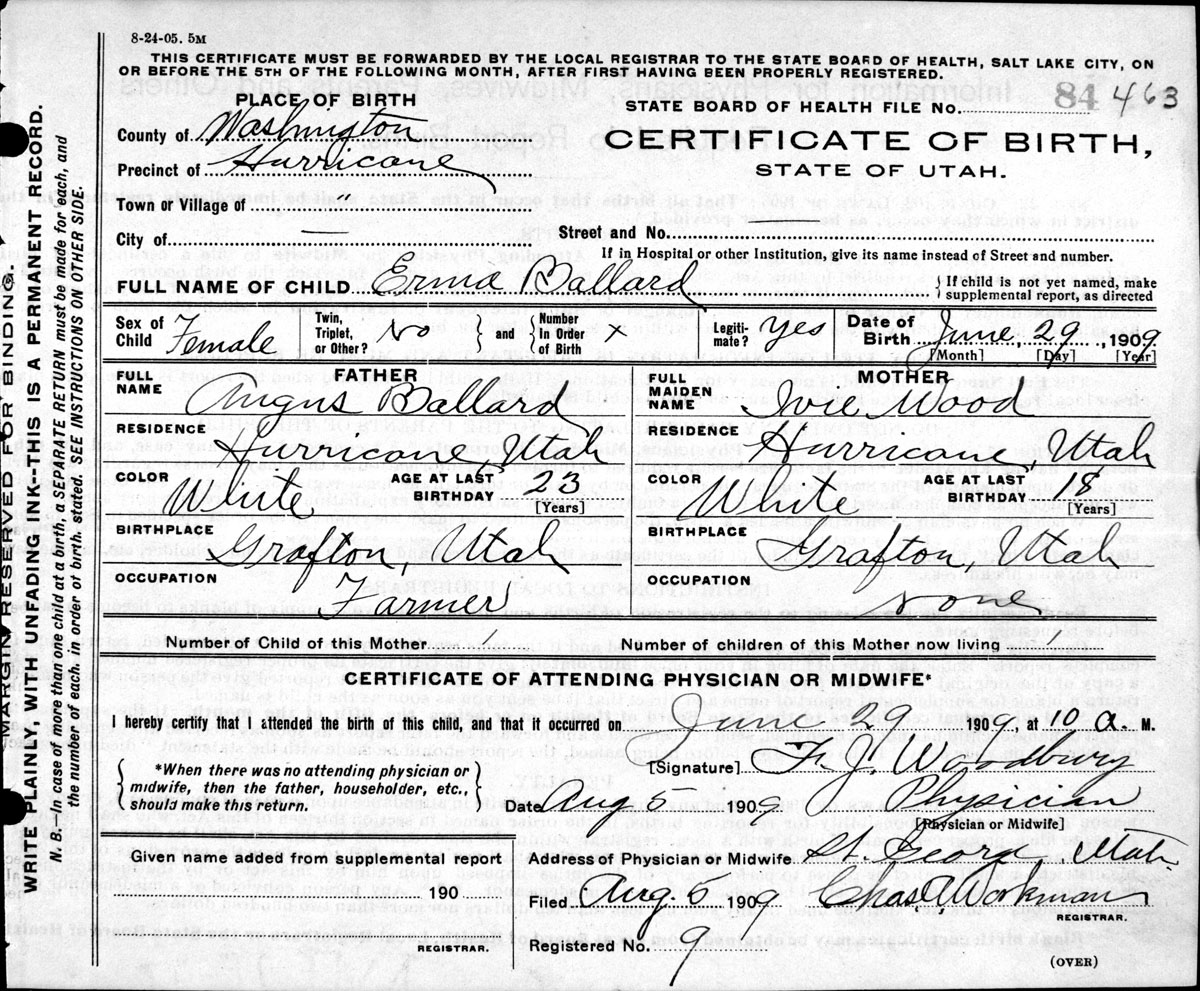 8-24-05. 5M
THIS CERTIFICATE MUST BE FORWARDED BY THE LOCAL REGISTRAR TO THE STATE BOARD OF HEALTH, SALT LAKE CITY, ON
OR BEFORE THE 5TH OF THE FOLLOWING MONTH, AFTER FIRST HAVING BEEN PROPERLY REGISTERED.
PLACE OF BIRTH
STATE BOARD OF HEALTH FILE No. 84 463
County of Washington
CERTIFICATE OF BIRTH,
Precinct of Hurricane
STATE OF UTAH.
Town or Village of "
City of — Street and No. —
If in Hospital or other Institution, give its name instead of Street and number.
FULL NAME OF CHILD Erma Ballard { If child is not yet named, make supplemental report, as directed
Sex of Child Female Twin, Triplet, or Other? No { and } Number In Order of Birth × Legiti-mate? Yes Date of Birth June, 29, 1909
[Month] [Day] [Year]
FATHER
FULL NAME Angus Ballard
RESIDENCE Hurricane, Utah
COLOR White AGE AT LAST BIRTHDAY 23 [Years]
BIRTHPLACE Grafton, Utah
OCCUPATION Farmer
MOTHER
FULL MAIDEN NAME Ivie Wood
RESIDENCE Hurricane, Utah
COLOR White AGE AT LAST BIRTHDAY 18 [Years]
BIRTHPLACE Grafton, Utah
OCCUPATION none
Number of Child of this Mother 1 Number of children of this Mother now living 1
CERTIFICATE OF ATTENDING PHYSICIAN OR MIDWIFE*
I hereby certify that I attended the birth of this child, and that it occurred on June 29 1909, at 10 a M.
{ *When there was no attending physician or midwife, then the father, householder, etc., should make this return. }
[Signature] F. J. Woodbury
Date Aug 5 1909 Physician
[Physician or Midwife]
Given name added from supplemental report
190
REGISTRAR.
Address of Physician or Midwife St. George, Utah
Filed Aug. 6 1909 Chas A Workman
REGISTRAR.
Registered No. 9
(OVER)
MARGIN RESERVED FOR BINDING.
WRITE PLAINLY, WITH UNFADING INK--THIS IS A PERMANENT RECORD.
N. B. In case of more than one child at a birth, a SEPARATE RETURN must be made for each, and
the number of each. in order of birth. stated. SEE INSTRUCTIONS ON OTHER SIDE.